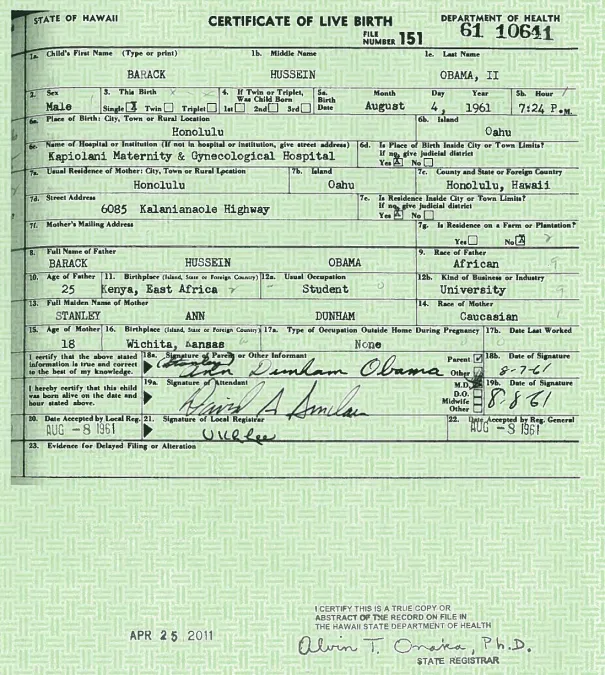 STATE OF HAWAII CERTIFICATE OF LIVE BIRTH DEPARTMENT OF HEALTH
FILE NUMBER 151 61 10641
1a. Child's First Name (Type or print) 1b. Middle Name 1c. Last Name
BARACK HUSSEIN OBAMA, II
2. Sex 3. This Birth 4. If Twin or Triplet, Was Child Born 5a. Birth Date Month Day Year 5b. Hour
Male Single X Twin Triplet 1st 2nd 3rd August 4, 1961 7:24 P.M.
6a. Place of Birth: City, Town or Rural Location 6b. Island
Honolulu Oahu
6c. Name of Hospital or Institution (If not in hospital or institution, give street address) 6d. Is Place of Birth Inside City or Town Limits? If no, give judicial district
Kapiolani Maternity & Gynecological Hospital Yes X No
7a. Usual Residence of Mother: City, Town or Rural Location 7b. Island 7c. County and State or Foreign Country
Honolulu Oahu Honolulu, Hawaii
7d. Street Address 7e. Is Residence Inside City or Town Limits? If no, give judicial district
6085 Kalanianaole Highway Yes X No
7f. Mother's Mailing Address 7g. Is Residence on a Farm or Plantation?
Yes No X
8. Full Name of Father 9. Race of Father
BARACK HUSSEIN OBAMA African
10. Age of Father 11. Birthplace (Island, State or Foreign Country) 12a. Usual Occupation 12b. Kind of Business or Industry
25 Kenya, East Africa Student University
13. Full Maiden Name of Mother 14. Race of Mother
STANLEY ANN DUNHAM Caucasian
15. Age of Mother 16. Birthplace (Island, State or Foreign Country) 17a. Type of Occupation Outside Home During Pregnancy 17b. Date Last Worked
18 Wichita, Kansas None
I certify that the above stated information is true and correct to the best of my knowledge. 18a. Signature of Parent or Other Informant Parent Other 18b. Date of Signature
(Stanley) Ann Dunham Obama 8-7-61
I hereby certify that this child was born alive on the date and hour stated above. 19a. Signature of Attendant M.D. D.O. Midwife Other 19b. Date of Signature
David A Sinclair 8-8-61
20. Date Accepted by Local Reg. 21. Signature of Local Registrar 22. Date Accepted by Reg. General
AUG -8 1961 AUG -8 1961
23. Evidence for Delayed Filing or Alteration
APR 25 2011
I CERTIFY THIS IS A TRUE COPY OR
ABSTRACT OF THE RECORD ON FILE IN
THE HAWAII STATE DEPARTMENT OF HEALTH
Alvin T. Onaka, Ph.D.
STATE REGISTRAR